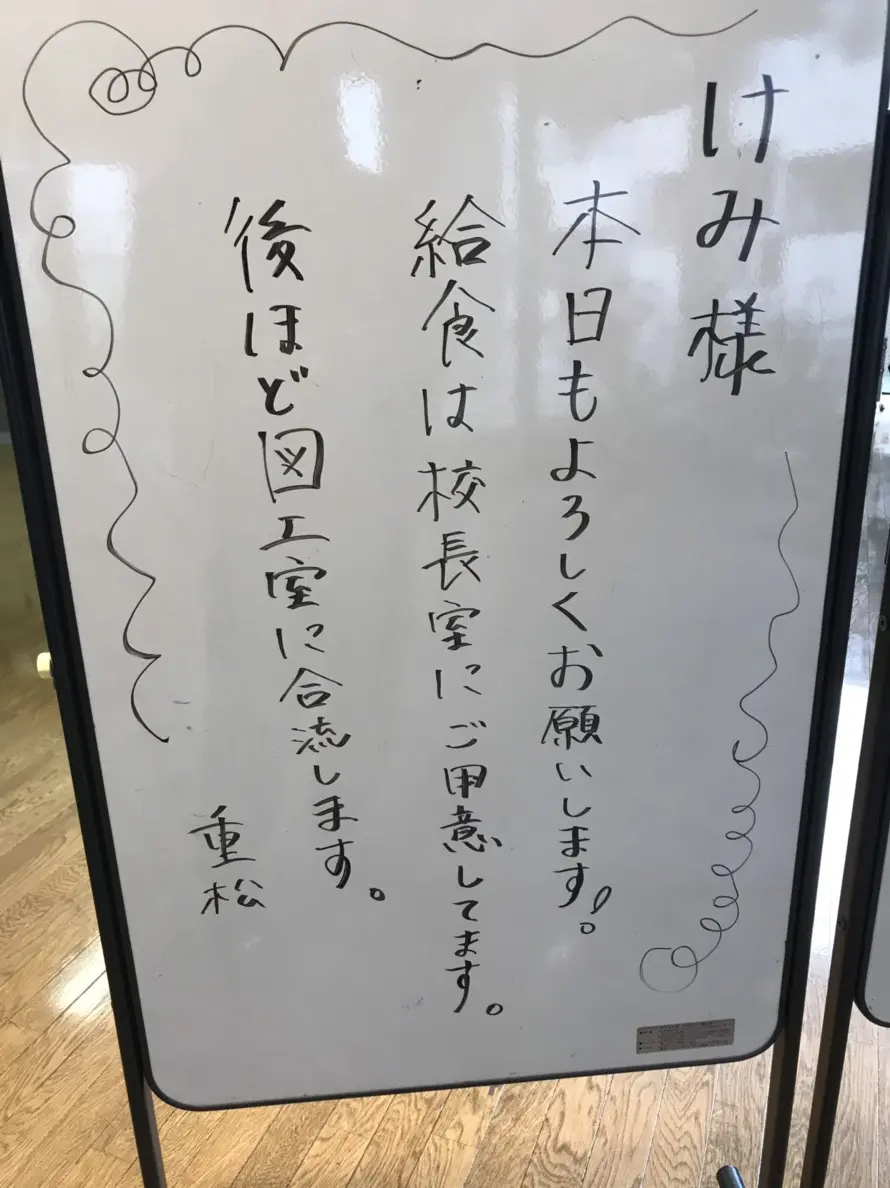 けみ様
本日もよろしくお願いします!。
給食は校長室にご用意してます。
後ほど図工室に合流します。
重松